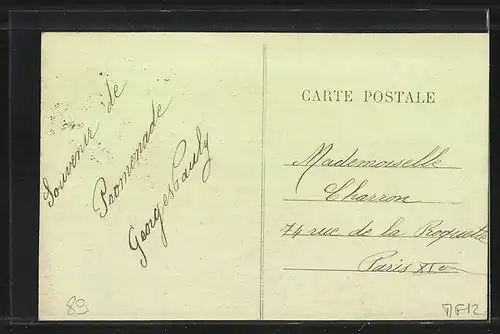 Souvenir de
Promenade
Georges Pauly
CARTE POSTALE
Mademoiselle
Charron
74 rue de la Roquette
Paris XIe
89